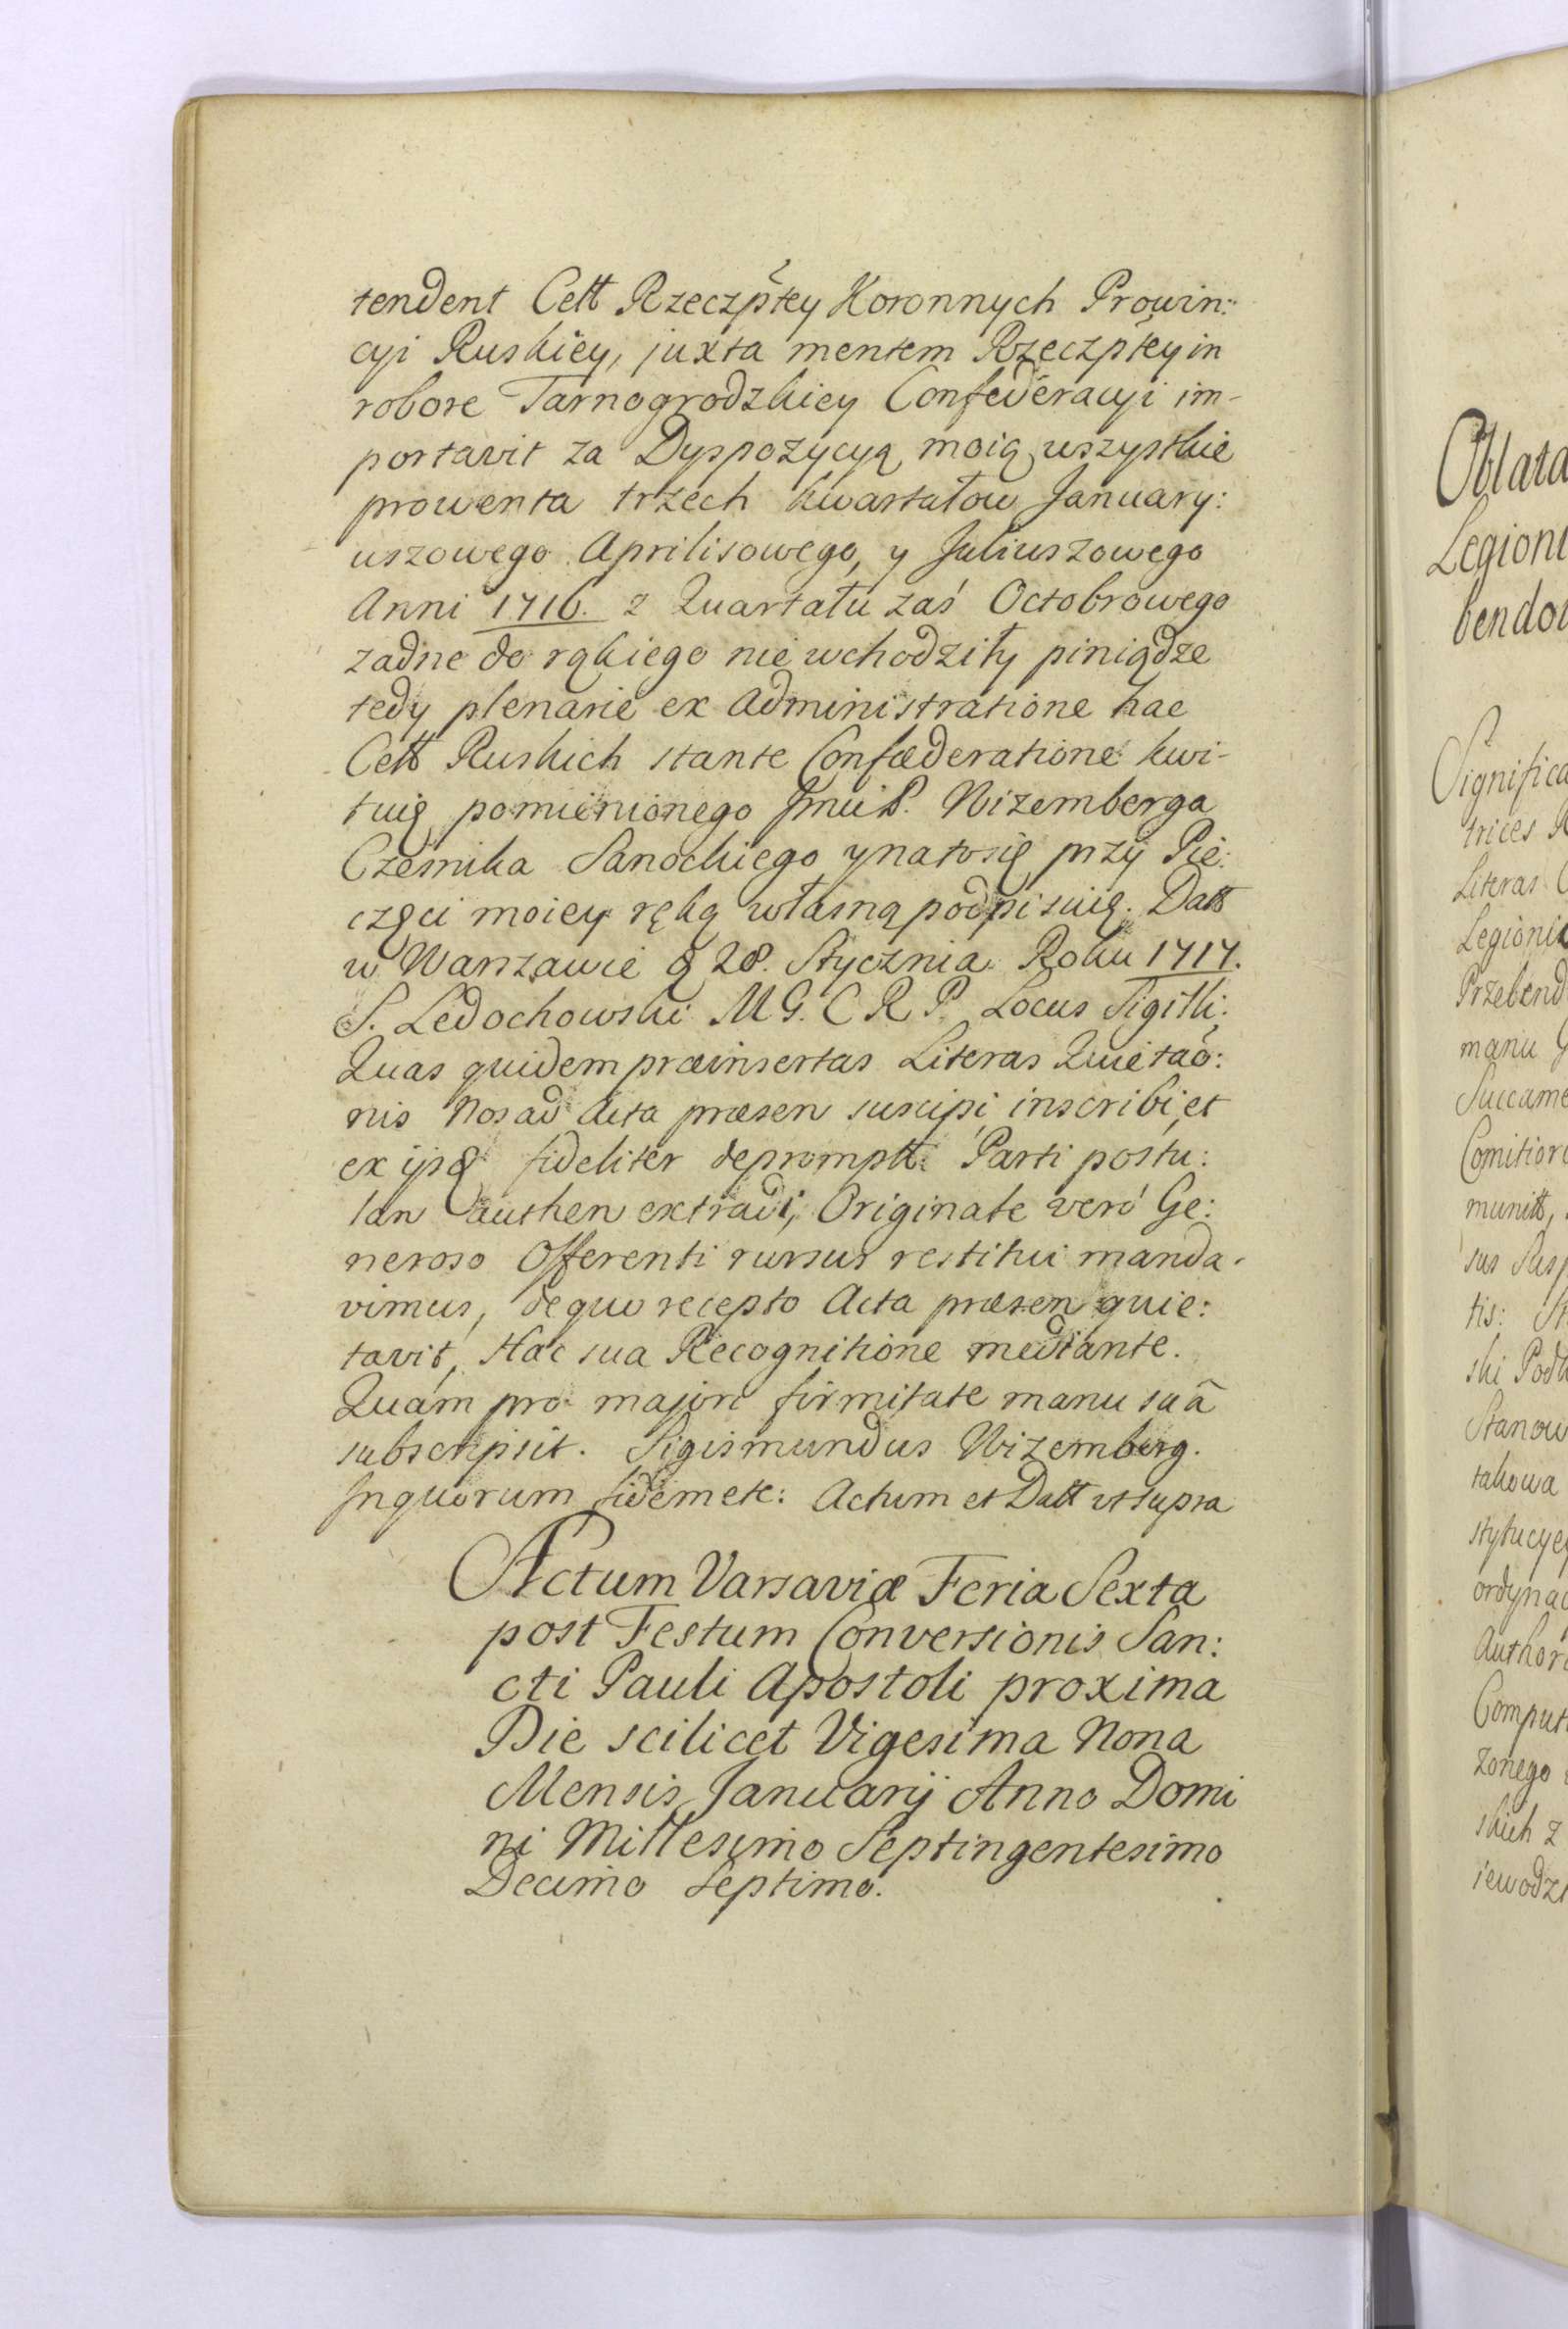 tendent Cełł Rzeczpłey Koronnych Prowin:
cyi Ruskiey, juxta mentem Rzeczpłey in
robore Tarnogrodzkiey Confederacyi im-
portavit za Dyspozycyą moią wszystkie
prowenta trzech kwartałow January:
uszowego Aprilisowego, y Juliuszowego
Anni 1716. z Quartału zaś Octobrowego
zadne do rąk iego nie wchodziły piniądze
tedy plenarie ex administratione hac
Cełł Ruskich stante Confæderatione kwi-
tuię pomienionego Jmći P. Wizemberga
Cześnika Sanockiego y na to się przy Pie:
częci moiey ręką własną podpisuię. Datt
w Warszawie d 28. Stycznia Roku 1717.
S. Ledochowski M G. C R P. Locus Sigilli.
Quas quidem præinsertas Literas Quietaõ:
nis Nos ad Acta præsen suscipi, inscribi, et
ex ijsq fideliter deprompłt. Parti postu:
lan authen extradi, Originale verò Ge:
neroso Offerenti rursus restitui manda-
vimus, de quo recepto Acta præsen quie:
tavit, Hac sua Recognitione mediante.
Quam pro majori firmitate manu suã
subscripsit. Sigismundus Wizemberg.
In quorum fidem etc: Actum et Datt ut supra
Actum Varsaviæ Feria Sexta
post Festum Conversionis San:
cti Pauli Apostoli proxima
Die scilicet Vigesima Nona
Mensis Januarij Anno Domi
ni Millesimo Septingentesimo
Decimo Septimo.
Oblata
Legioni
bendo
Significa
trices R
Literas C
Legionis
Przebend
manu G
Succame
Comitior
munitt,
sus Susp
tis: St
ski Podk
Stanow
takowa
stytucye
ordynac
Author
Comput
zonego
skich z
iewodz